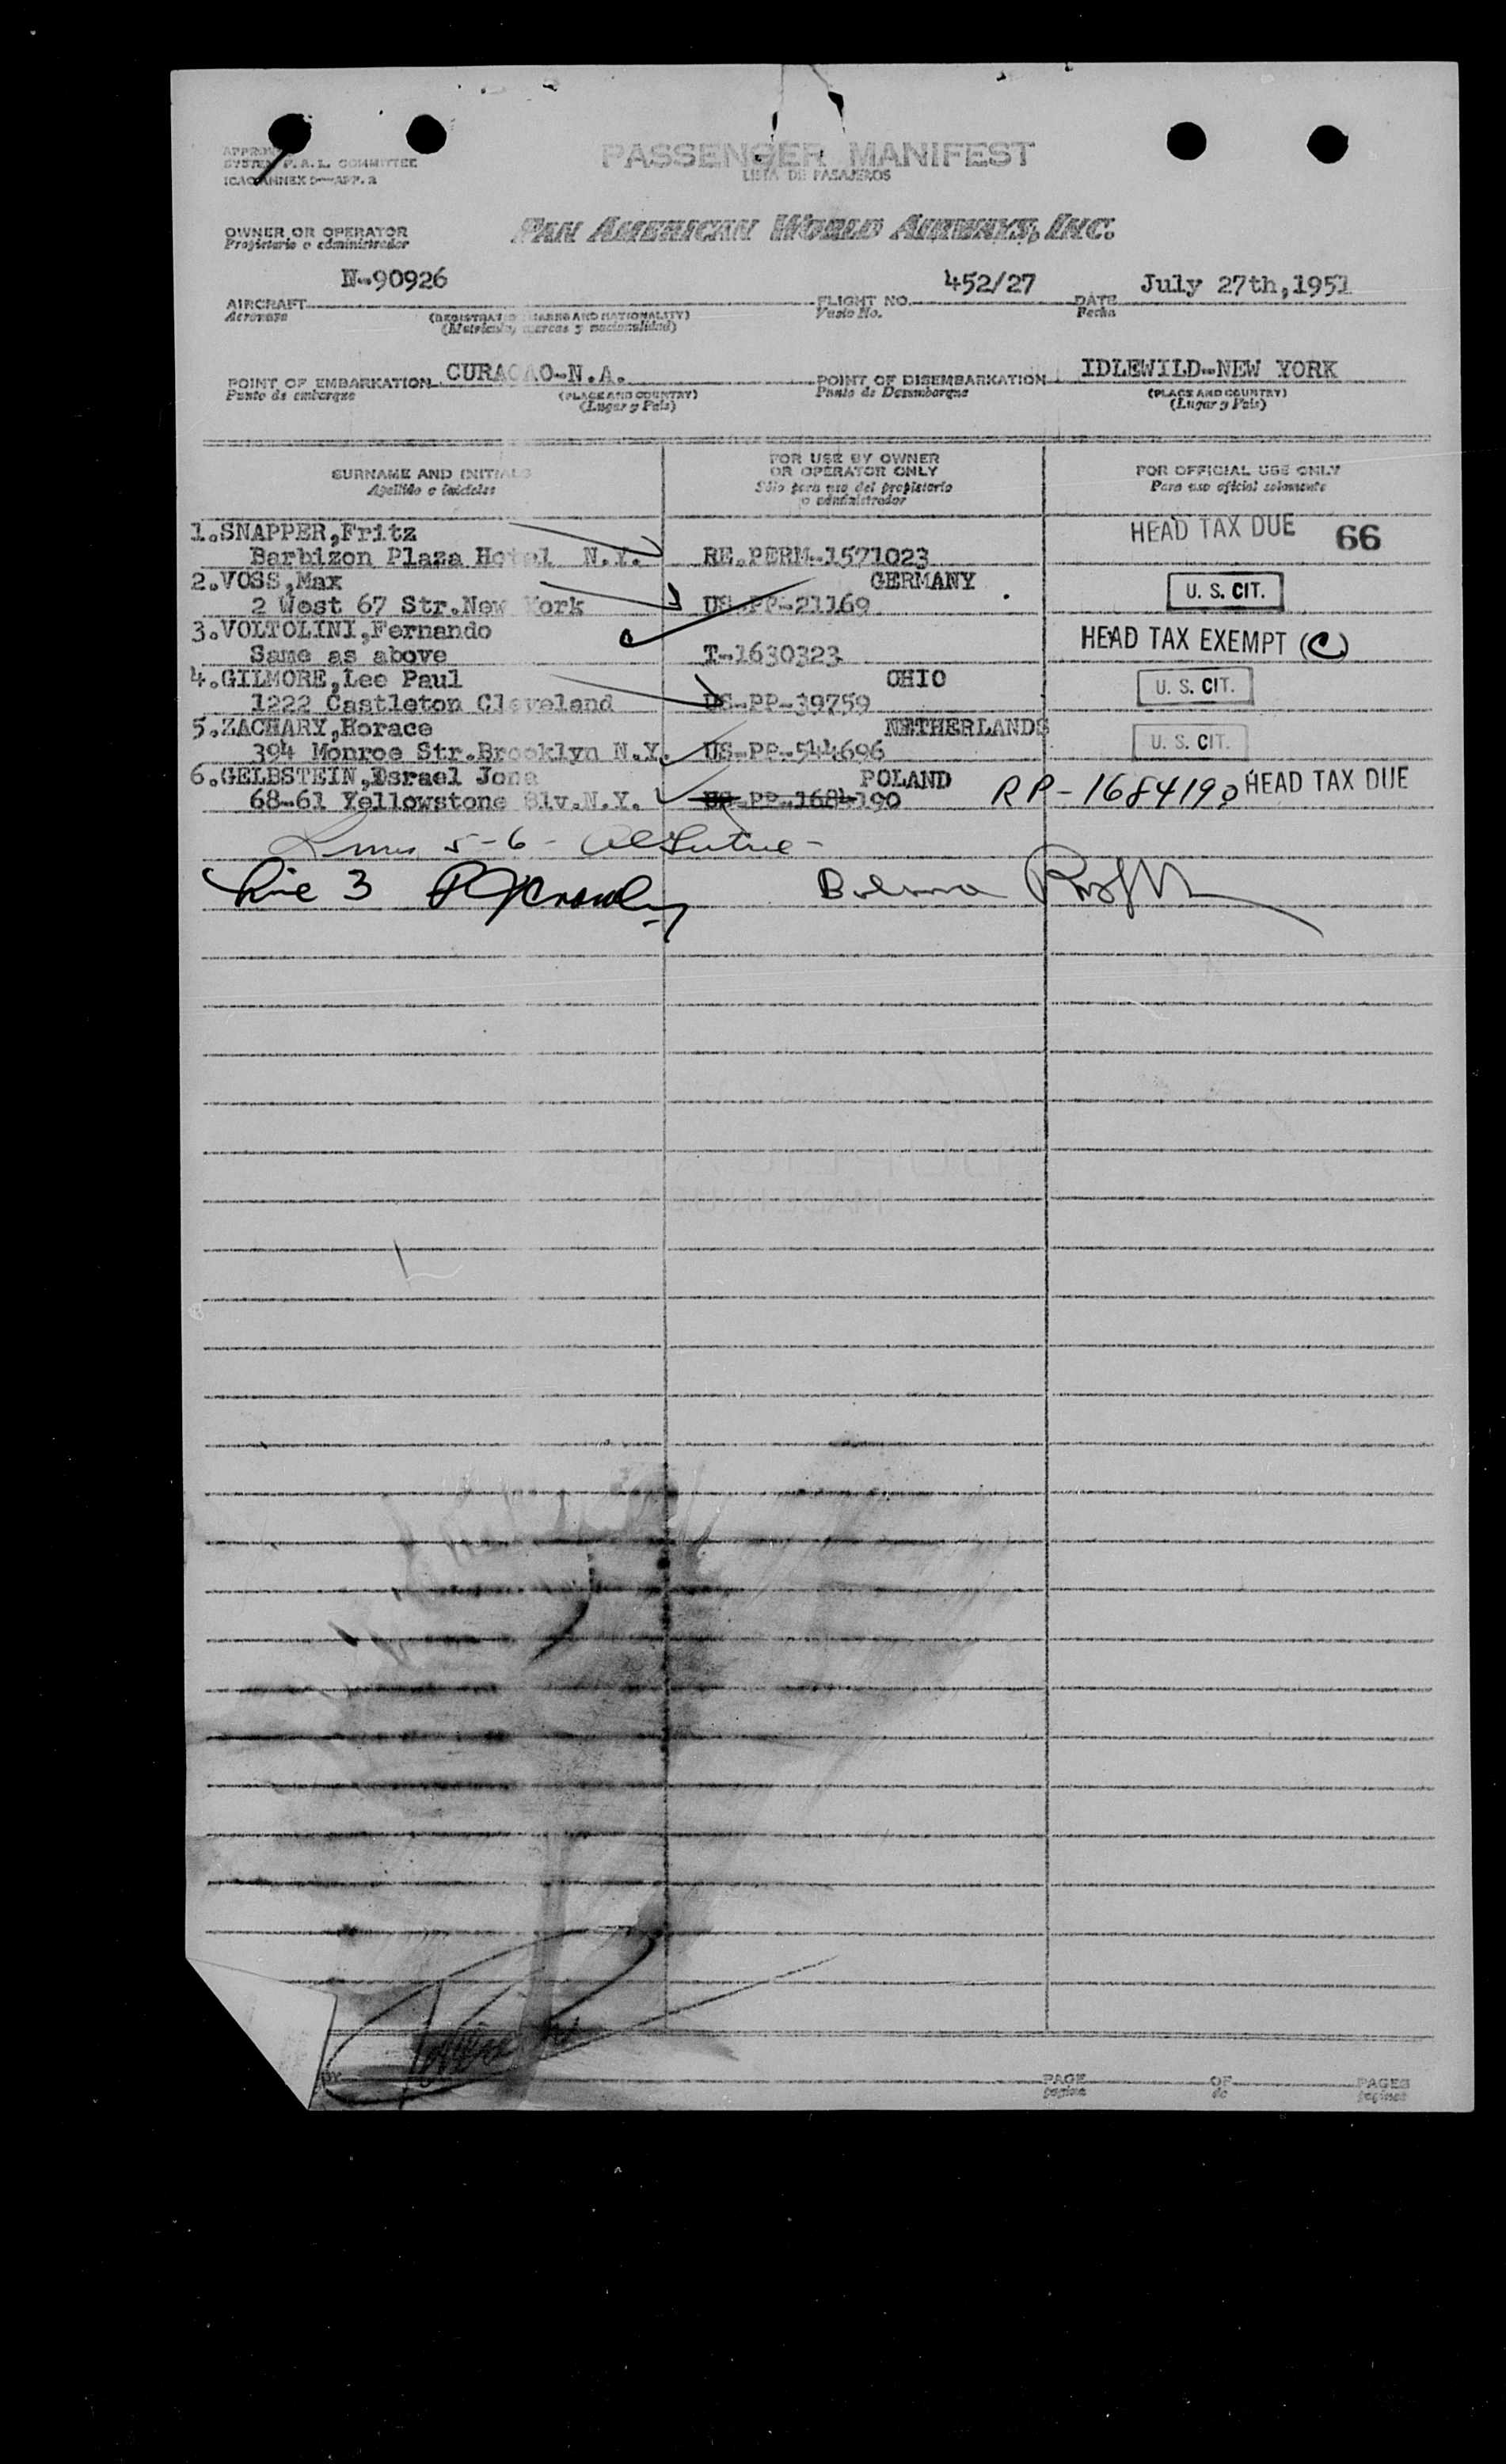 PASSENGER MANIFEST
LISTA DE PASAJEROS
SYSTEM F.A.L. COMMITTEE
ICAO ANNEX 9—APP. 2
OWNER OR OPERATOR
Propietario o administrador
PAN AMERICAN WORLD AIRWAYS, INC.
N-90926 452/27 July 27th,1951
AIRCRAFT FLIGHT NO. DATE
Aeronave Vuelo No. Fecha
(REGISTRATION MARKS AND NATIONALITY)
(Matrícula, marcas y nacionalidad)
POINT OF EMBARKATION CURACAO-N.A. POINT OF DISEMBARKATION IDLEWILD-NEW YORK
Punto de embarque (PLACE AND COUNTRY) Punto de Desembarque (PLACE AND COUNTRY)
(Lugar y País) (Lugar y País)
SURNAME AND INITIALS FOR USE BY OWNER OR OPERATOR ONLY FOR OFFICIAL USE ONLY
Apellido e iniciales Sólo para uso del propietario o administrador Para uso oficial solamente
1.SNAPPER,Fritz HEAD TAX DUE 66
Barbizon Plaza Hotel N.Y. RE.PERM-1571023
2.VOSS,Max GERMANY U. S. CIT.
2 West 67 Str.New York US-PP-21169
3.VOLTOLINI,Fernando HEAD TAX EXEMPT (C)
Same as above T-1630323
4.GILMORE,Lee Paul OHIO U. S. CIT.
1222 Castleton Cleveland US-PP-39759
5.ZACHARY,Horace NETHERLANDS U. S. CIT.
394 Monroe Str.Brooklyn N.Y. US-PP-544696
6.GELBSTEIN,Israel Jona POLAND RP-1684190 HEAD TAX DUE
68-61 Yellowstone Blv.N.Y. US-PP-1684190
5-6-
Line 3
PAGE OF PAGES
página de páginas